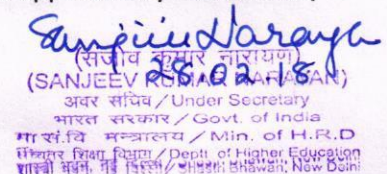 Sanjeev Narayan
28.02.18
(संजीव कुमार नारायण)
(SANJEEV KUMAR NARAYAN)
अवर सचिव / Under Secretary
भारत सरकार / Govt. of India
मा.सं.वि. मन्त्रालय / Min. of H.R.D
उच्चतर शिक्षा विभाग / Deptt. of Higher Education
शास्त्री भवन, नई दिल्ली / Shastri Bhawan, New Delhi